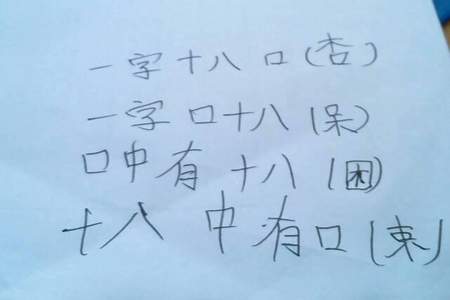 一字十八口(杏)
一字口十八(呆)
口中有十八(困)
十八中有口(束)